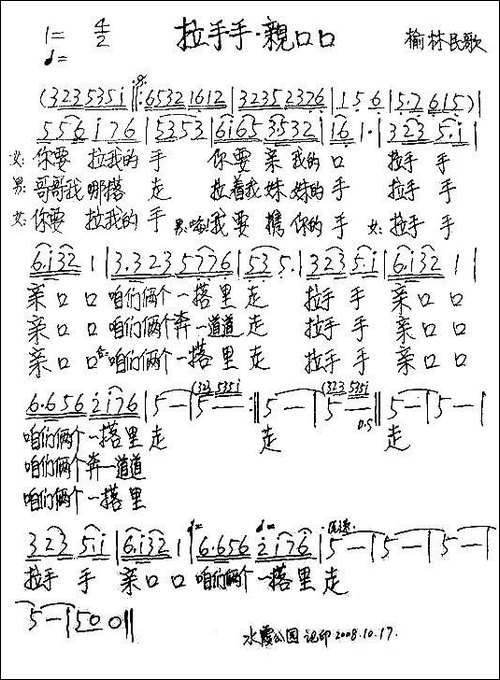 1= 4/2 拉手手·亲口口 榆林民歌
♩=
(323 535i |: 65321612 | 32352376 | 1 5 6 | 5·7 615) |
556 i76 | 5353 | 6i65 3532 | i6 1· | 323 5·i |
女:你要 拉我的 手 你要 亲 我的 口 拉手 手
男:哥哥我 哪搭 走 拉着我 妹妹的 手 拉手 手
女:你要 拉我的 手 男:我要 携 你的 手 女:拉手 手
6·i32 1 | 3·323 5776 | 53 5· | 323 5·i | 6·i32 1 |
亲 口 口 咱们俩个 一搭里 走 拉手 手 亲 口 口
亲 口 口 咱们俩个 奔一道道 走 拉手 手 亲 口 口
亲 口 口 咱们俩个 一搭里 走 拉手 手 亲 口 口
(323 535i (323 535i
6·656 2i76 | 5 — | 5 — :‖ 5 — | 5 — ‖ 5 — | 5 — |
D.S
咱们俩个 一搭里 走 走 走
咱们俩个 奔一道道
咱们俩个 一搭里
323 5·i | 6·i32 1 | 6·656 2i76 | 5 — | 5 — | 5 — |
拉手 手 亲 口 口 咱们俩个 一搭里 走
5 — | 50 0 ‖
水霞公园 记印 2008.10.17.